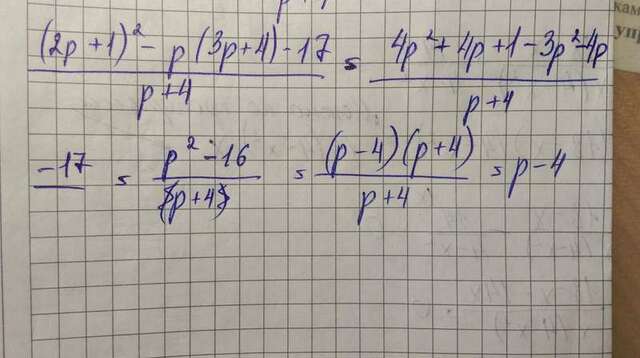 кам
упр
((2p+1)² - p(3p+4) - 17)/(p+4) = (4p² + 4p + 1 - 3p² - 4p)/(p+4)
(-17)/ = (p² - 16)/(p+4) = ((p-4)(p+4))/(p+4) = p-4